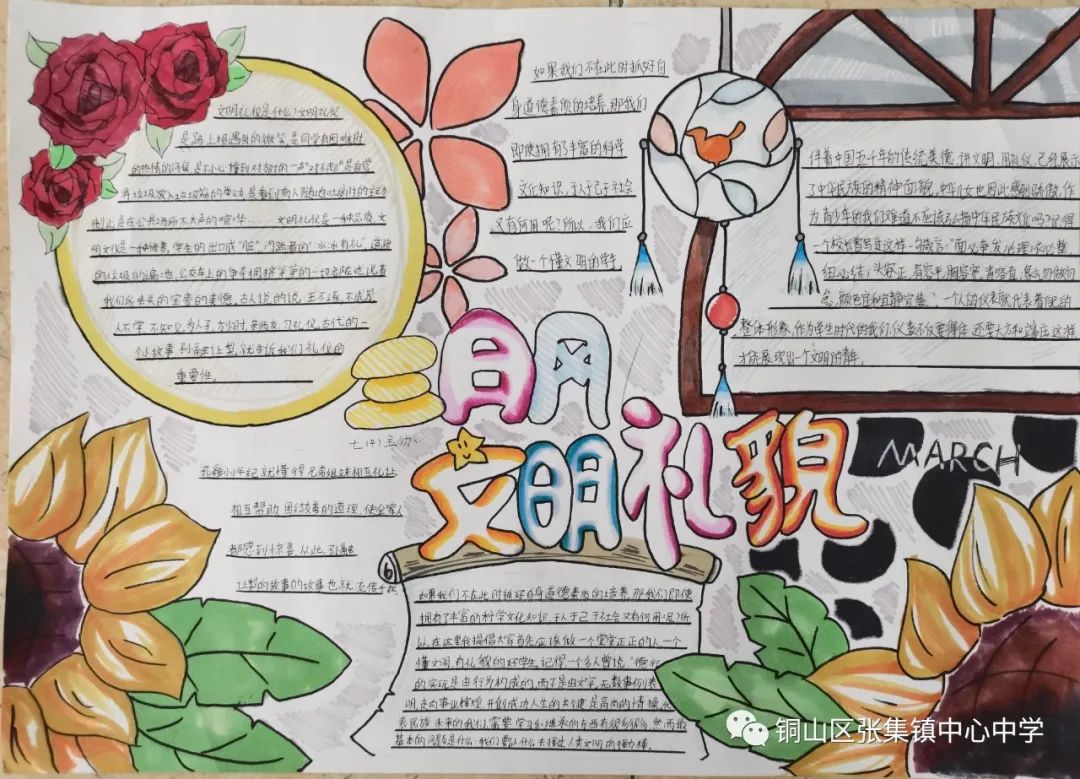 文明礼仪是什么?文明礼仪
是路上相遇时的微笑,是同学有困难时
的热情的问候,是不小心撞到对方时的一声"对不起"是自觉
将垃圾放入垃圾箱的举动,是看到有人随地吐痰时的主动
制止是在公共场所不大声的喧哗……文明礼仪是一种品质,文
明文化是一种修养,学生的出口成"脏"
我们所丢失的宝贵的美德,古人说的说,玉不琢,不成器
人不学,不知义,为人子,方少时,亲师友,习礼仪,古代的一
个故事 孔融让梨,就告诉我们礼仪的
重要性。
如果我们不在此时抓好自
身道德素质的培养,那我们
即使拥有多丰富的科学
文化知识,于人于己于社会
又有何用呢?所以,我们应
做一个懂文明的青年
伴着中国五千年的传统美德,讲文明,用礼仪,已经展示
了中华民族的精神面貌,中华儿女也因此感到骄傲,作
为青少年的我们难道不应该弘扬中华民族文化吗?记得
一个校长曾写过这样一句箴言:"面必净,发必理,衣必整,
纽必结,头容正,肩容平,胸容宽,背容直,气勿傲勿
怠,颜色宜和宜静宜装",一个人的仪表就代表着他的
整体形象,作为学生时代的我们,仪表不仅要得体,还要大方和端庄,这样
才能展现出一个文明的青年。
三月
七(4)王办
文明礼貌
MARCH
孔融小小年纪就懂得兄弟姐妹相互礼让
相互帮助,团结友善的道理,使全家人
都感到惊喜,从此,孔融
让梨的故事的故事也就流传千载
如果我们不在此时抓好自身道德素质的培养,那我们即使
拥有了丰富的科学文化知识,于人于己于社会又有何用呢?所
以,在这里我提倡大家首先应该做一个堂堂正正的人一个
懂文明,有礼貌的好学生,记得一个名人曾说"德行
的实现是由行为构成的,而不是由文字,无数事例表
明,走向事业辉煌,开创成功人生的关键是高尚的情操
民族未来的我们,需要学习和继承的东西有很多很多,然而最
基本的问题是什么,我们要以什么去接过人类文明的接力棒。
铜山区张集镇中心中学